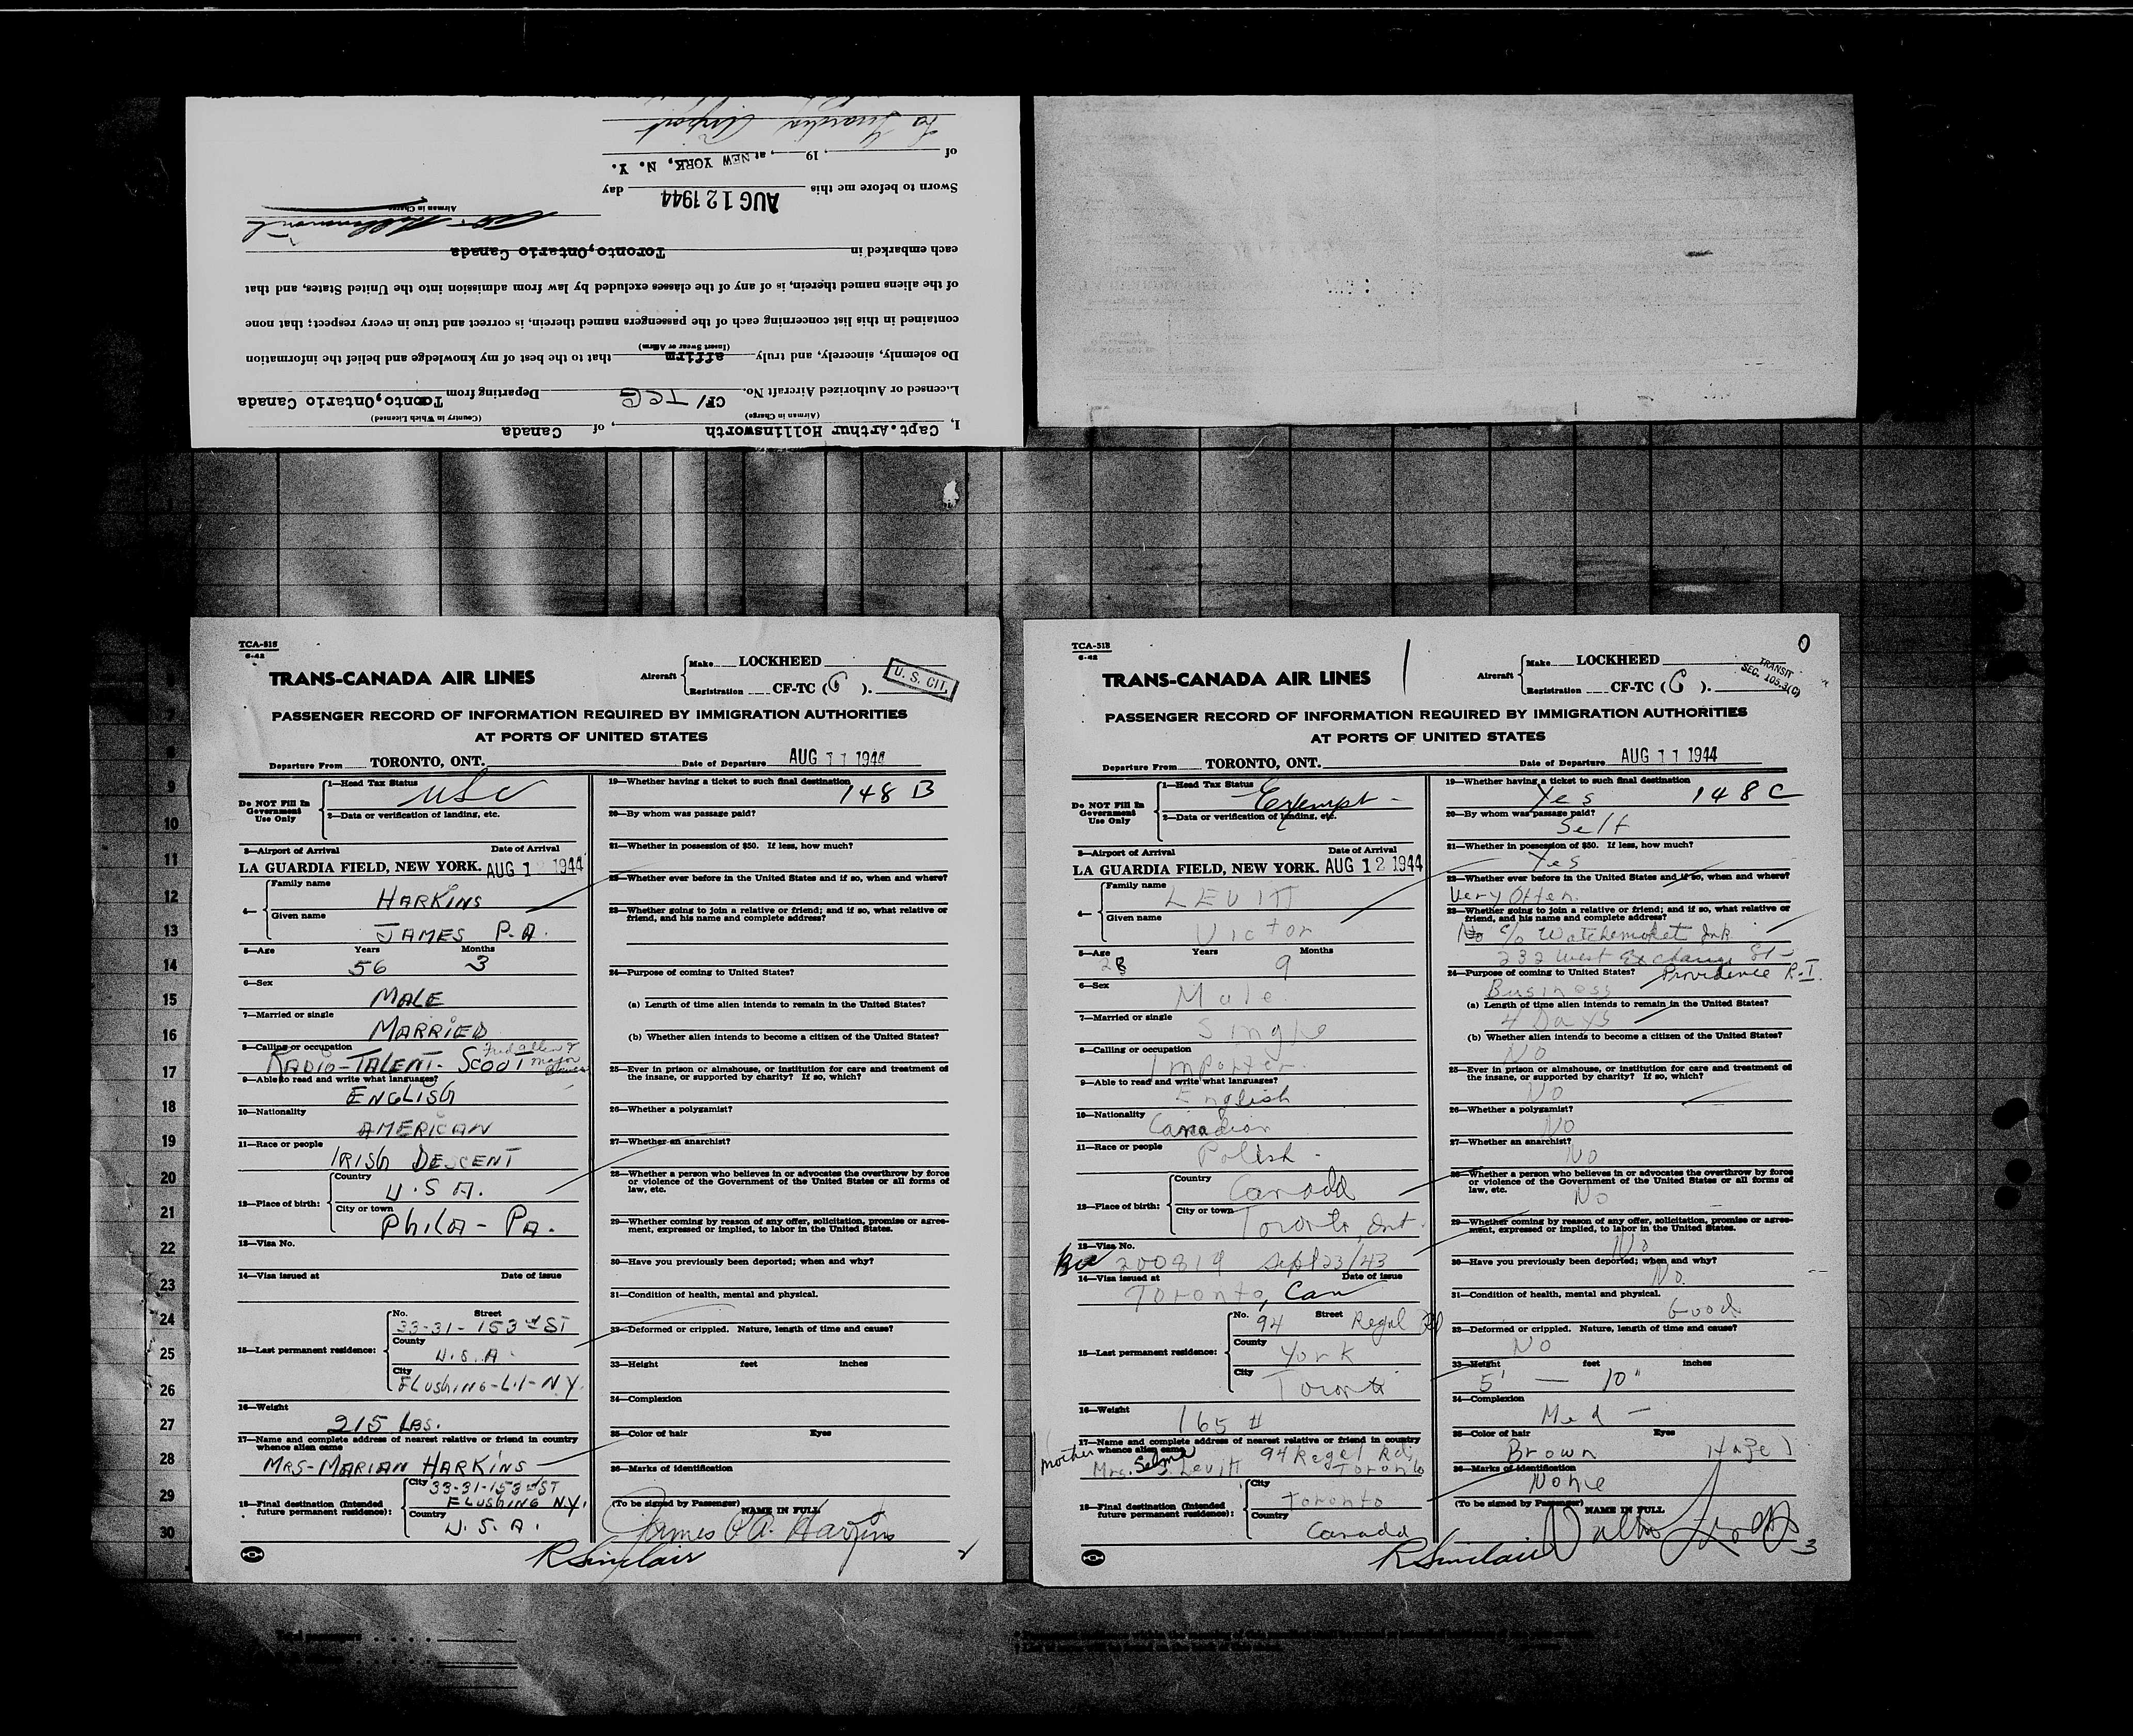 I, Capt. Arthur Hollinsworth, of Canada
(Airman in Charge) (Country in Which Licensed)
Licensed or Authorized Aircraft No. CF/ TCG Departing from Toronto, Ontario Canada
Do solemnly, sincerely, and truly affirm that to the best of my knowledge and belief the information
(Insert Swear or Affirm)
contained in this list concerning each of the passengers named therein, is correct and true in every respect; that none
of the aliens named therein, is of any of the classes excluded by law from admission into the United States, and that
each embarked in Toronto, Ontario Canada
Airman in Charge
Sworn to before me this AUG 12 1944 day
of , 19 , at NEW YORK, N. Y.
La Guardia Airport
TCA-518
6-42
TRANS-CANADA AIR LINES
Aircraft Make LOCKHEED
Registration CF-TC (G).
U. S. CIT.
PASSENGER RECORD OF INFORMATION REQUIRED BY IMMIGRATION AUTHORITIES
AT PORTS OF UNITED STATES
Departure From TORONTO, ONT. Date of Departure AUG 11 1944
Do NOT Fill In Government Use Only
1—Head Tax Status USC
2—Data or verification of landing, etc.
3—Airport of Arrival Date of Arrival
LA GUARDIA FIELD, NEW YORK. AUG 12 1944
4—
Family name HARKINS
Given name JAMES P.A.
5—Age Years Months
56 3
6—Sex
MALE
7—Married or single
MARRIED
8—Calling or occupation
RADIO-TALENT-SCOUT Fred allen & major
9—Able to read and write what languages?
ENGLISH
10—Nationality
AMERICAN
11—Race or people
IRISH DESCENT
12—Place of birth:
Country U.S.A.
City or town PhilA - PA.
13—Visa No.
14—Visa issued at Date of issue
15—Last permanent residence:
No. Street
33-31-153rd ST
County
U.S.A.
City
FLUSHING-L.I-N.Y.
16—Weight
215 LBS.
17—Name and complete address of nearest relative or friend in country
whence alien came
MRS-MARIAN HARKINS
18—Final destination (Intended
future permanent residence):
City 33-31-153rd ST
FLUSHING N.Y.
Country
U.S.A.
19—Whether having a ticket to such final destination
148 B
20—By whom was passage paid?
21—Whether in possession of $50. If less, how much?
22—Whether ever before in the United States and if so, when and where?
23—Whether going to join a relative or friend; and if so, what relative or
friend, and his name and complete address?
24—Purpose of coming to United States?
(a) Length of time alien intends to remain in the United States?
(b) Whether alien intends to become a citizen of the United States?
25—Ever in prison or almshouse, or institution for care and treatment of
the insane, or supported by charity? If so, which?
26—Whether a polygamist?
27—Whether an anarchist?
28—Whether a person who believes in or advocates the overthrow by force
or violence of the Government of the United States or all forms of
law, etc.
29—Whether coming by reason of any offer, solicitation, promise or agree-
ment, expressed or implied, to labor in the United States.
30—Have you previously been deported; when and why?
31—Condition of health, mental and physical.
32—Deformed or crippled. Nature, length of time and cause?
33—Height feet inches
34—Complexion
35—Color of hair Eyes
36—Marks of identification
(To be signed by Passenger) NAME IN FULL
James P.A. Harkins
R Sinclair
2
TCA-518
6-42
TRANS-CANADA AIR LINES
Aircraft Make LOCKHEED
Registration CF-TC (G).
0
TRANSIT
SEC. 105.3(C)
PASSENGER RECORD OF INFORMATION REQUIRED BY IMMIGRATION AUTHORITIES
AT PORTS OF UNITED STATES
Departure From TORONTO, ONT. Date of Departure AUG 11 1944
Do NOT Fill In Government Use Only
1—Head Tax Status Exempt -
2—Data or verification of landing, etc.
3—Airport of Arrival Date of Arrival
LA GUARDIA FIELD, NEW YORK. AUG 12 1944
4—
Family name LEVITT
Given name Victor
5—Age Years Months
28 9
6—Sex
Male
7—Married or single
Single
8—Calling or occupation
Importer.
9—Able to read and write what languages?
English
10—Nationality
Canadian
11—Race or people
Polish -
12—Place of birth:
Country Canada
City or town Toronto, Ont.
13—Visa No.
200819 Sept 23/43
14—Visa issued at Date of issue
Toronto, Can
15—Last permanent residence:
No. 94 Street Regal Rd
County
York
City
Toronto
16—Weight
165 #
17—Name and complete address of nearest relative or friend in country
whence alien came
mother Mrs. Selma S. Levitt 94 Regal Rd, Toronto
18—Final destination (Intended
future permanent residence):
City
Toronto
Country
Canada
19—Whether having a ticket to such final destination
Yes 148 C
20—By whom was passage paid?
Self
21—Whether in possession of $50. If less, how much?
Yes
22—Whether ever before in the United States and if so, when and where?
Very Often.
23—Whether going to join a relative or friend; and if so, what relative or
friend, and his name and complete address?
No c/o Watchemoket Ink
232 West Exchange St -
Providence R.I.
24—Purpose of coming to United States?
Business
(a) Length of time alien intends to remain in the United States?
4 Days
(b) Whether alien intends to become a citizen of the United States?
No
25—Ever in prison or almshouse, or institution for care and treatment of
the insane, or supported by charity? If so, which?
No
26—Whether a polygamist?
No
27—Whether an anarchist?
No
28—Whether a person who believes in or advocates the overthrow by force
or violence of the Government of the United States or all forms of
law, etc.
No
29—Whether coming by reason of any offer, solicitation, promise or agree-
ment, expressed or implied, to labor in the United States.
No
30—Have you previously been deported; when and why?
No.
31—Condition of health, mental and physical.
Good
32—Deformed or crippled. Nature, length of time and cause?
No
33—Height feet inches
5' — 10"
34—Complexion
Med -
35—Color of hair Eyes
Brown Hazel
36—Marks of identification
None
(To be signed by Passenger) NAME IN FULL
R Sinclair
3
9
10
11
12
13
14
15
16
17
18
19
20
21
22
23
24
25
26
27
28
29
30